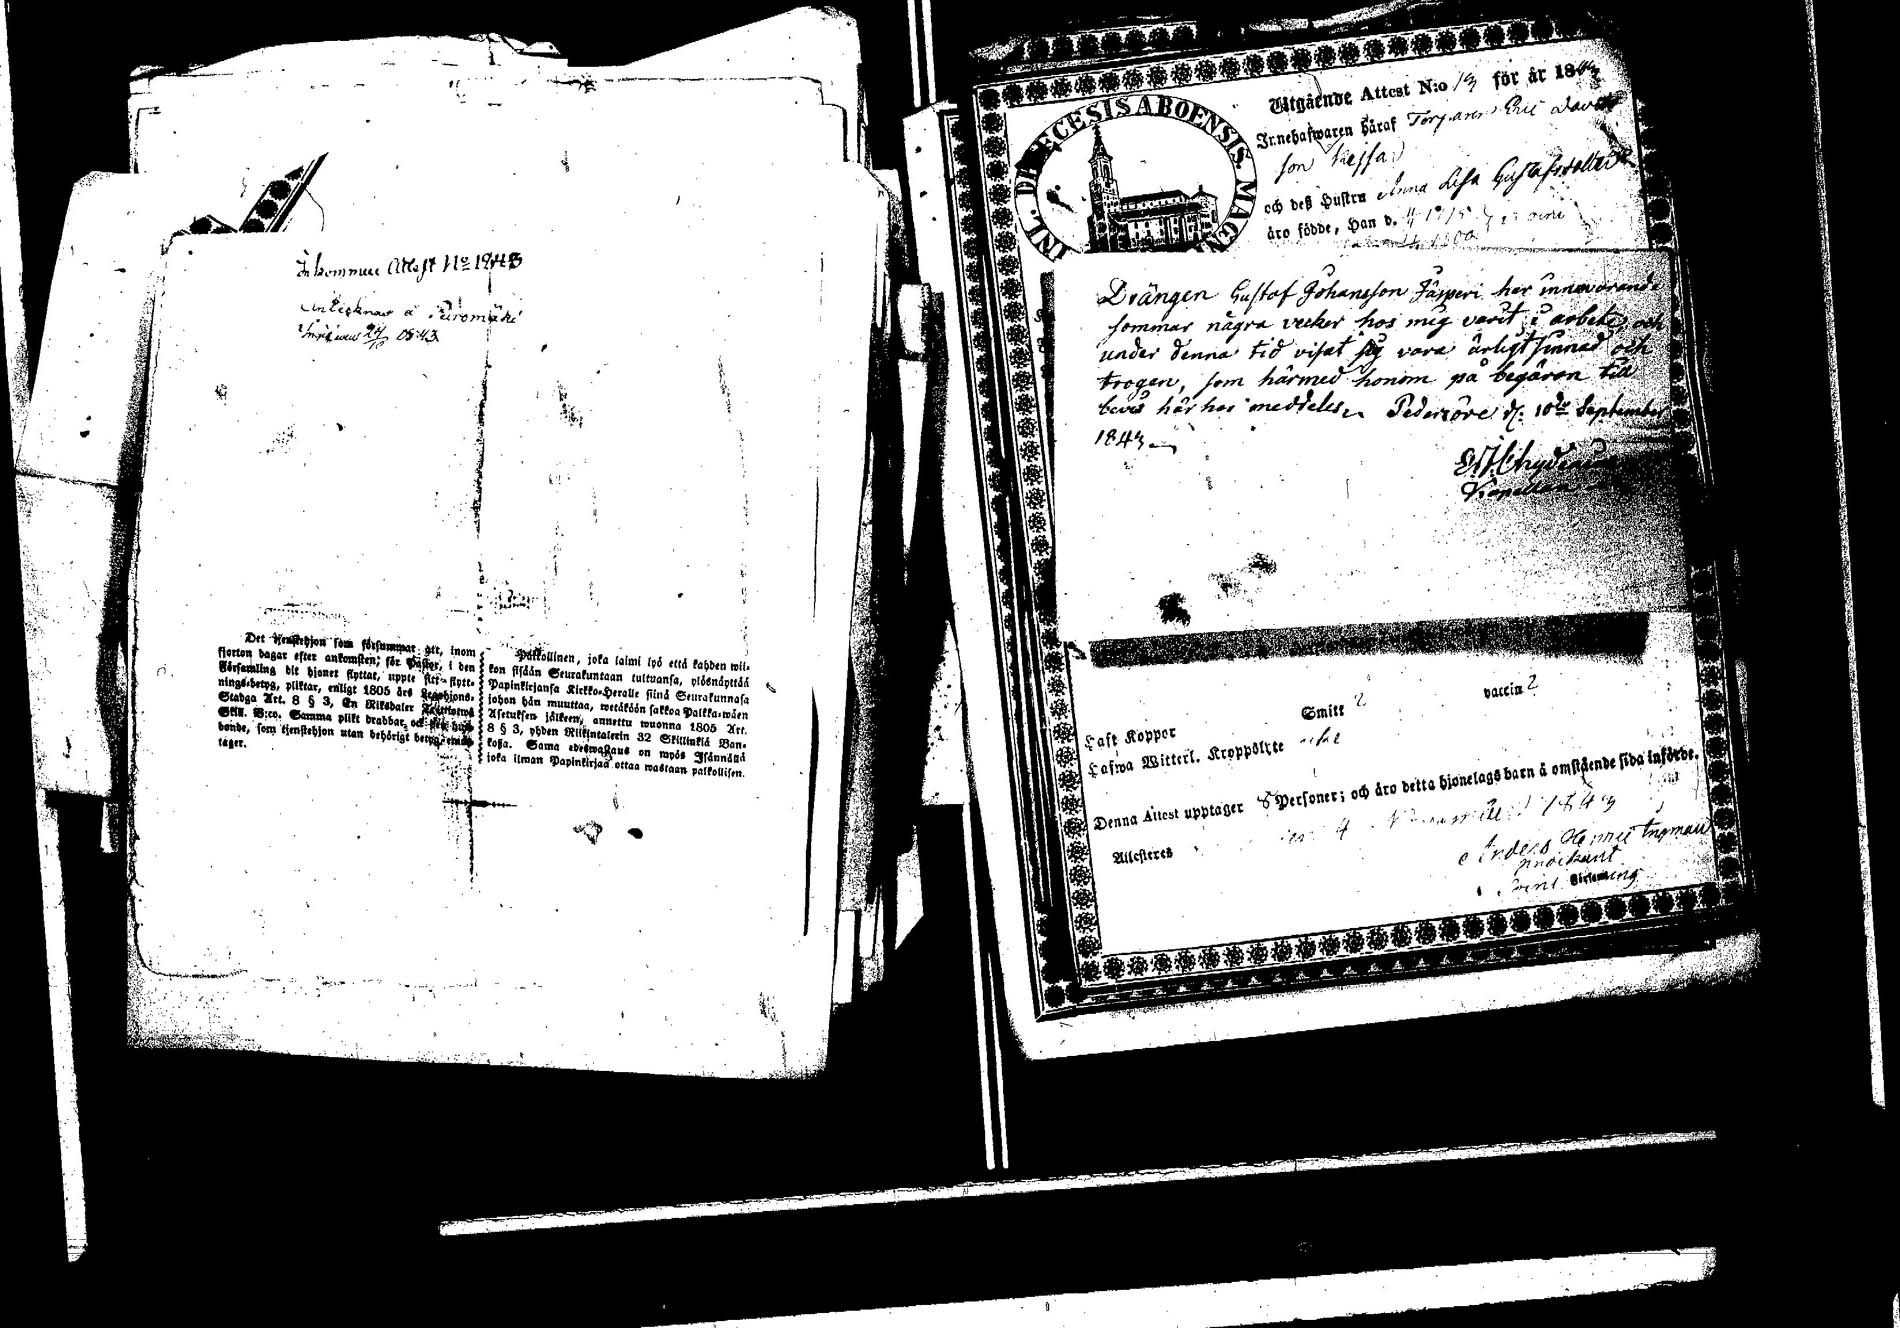 Inkommen Attest No 1843
Antecknad å Puromäki
1843
Det tjenstehjon som försummar att, inom
fjorton dagar efter ankomsten, för Pastor, i den
Församling dit hjonet flyttat, uppte sitt flytt-
nings-betyg, pliktar, enligt 1805 års Legohjons-
Stadga Art. 8 § 3, En Riksdaler Trettiotwå
Skill. B:co. Samma plikt drabbar ock den hus-
bonde, som tjenstehjon utan behörigt betyg emot-
tager.
Palkollinen, joka laimi lyö että kahden wii-
kon sisään Seurakuntaan tultuansa, ylösnäyttää
Papinkirjansa Kirkko-Heralle siinä Seurakunnasa
johon hän muuttaa, wetäköön sakkoa Palkka-wäen
Asetuksen jälkeen, annettu wuonna 1805 Art.
8 § 3, yhden Riikintalerin 32 Skillinkiä Ban-
kossa. Sama edeswastaus on myös Isännällä
joka ilman Papinkirjaa ottaa wastaan palkollisen.
DIOECESIS ABOENSIS MAGN
Utgående Attest N:o 13 för år 1843
Innehafwaren häraf Torparen Eric Davids
son
och deß Hustru Anna Lisa Gustafsdotter
äro födde, Han d.
Drängen Gustaf Johansson Jäsperi har innevarande
sommar några veckor hos mig varit i arbete, och
under denna tid visat sig vara ärligt sinnad och
trogen, som härmed honom på begäran till
bevis härhos meddeles. Pedersöre d. 10de September
1843.
E N Chydenius
Haft Koppor Smitt 2 vaccin 2
Hafwa Witterl. Kroppslyte
Denna Attest upptager 8 Personer; och äro detta hjonelags barn å omstående sida införde.
Attesteres 4 1843
Anders Henric Ingman
Församling